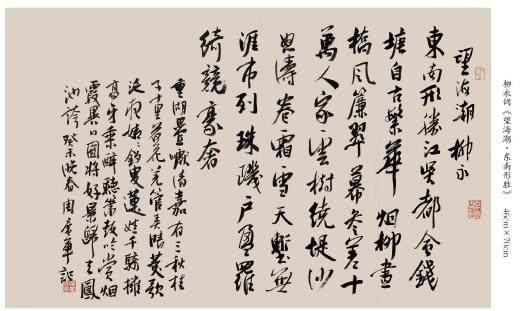 柳永词《望海潮·东南形胜》 46cm×70cm
望海潮 柳永
東南形勝江吴都會錢
塘自古繁華 烟柳畫
橋風簾翠幕參差十
萬人家雲樹繞堤沙
怒濤卷霜雪天塹無
涯市列珠璣户盈羅
綺競豪奢
重湖疊巘清嘉有三秋桂
子十里荷花羌管弄晴菱歌
泛夜嬉嬉釣叟蓮娃千騎擁
高牙乘醉聽簫鼓吟賞烟
霞異日圖將好景歸去鳳
池誇 癸未晚春 周